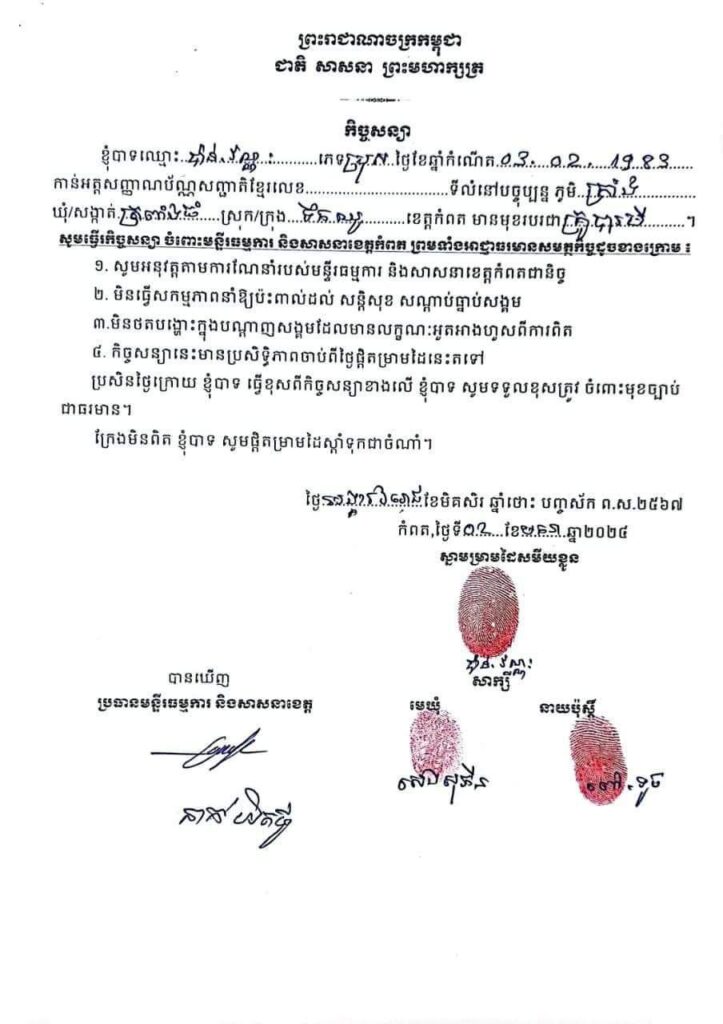 ព្រះរាជាណាចក្រកម្ពុជា
ជាតិ សាសនា ព្រះមហាក្សត្រ
កិច្ចសន្យា
ខ្ញុំបាទឈ្មោះ..ប៉ាន់.វណ្ណៈ............ភេទប្រុស.ថ្ងៃខែឆ្នាំកំណើត.03....02....1983......
កាន់អត្តសញ្ញាណប័ណ្ណសញ្ជាតិខ្មែរលេខ..............................ទីលំនៅបច្ចុប្បន្ន ភូមិ.
ឃុំ/សង្កាត់.ត្រពាំងធំ.....ស្រុក/ក្រុង....ទឹកឈូ.........ខេត្តកំពត មានមុខរបរជាគ្រូបារមី........។
សូមធ្វើកិច្ចសន្យា ចំពោះមន្ទីរធម្មការ និងសាសនាខេត្តកំពត ព្រមទាំងអាជ្ញាធរមានសមត្ថកិច្ចដូចខាងក្រោម ៖
១. សូមអនុវត្តតាមការណែនាំរបស់មន្ទីរធម្មការ និងសាសនាខេត្តកំពតជានិច្ច
២. មិនធ្វើសកម្មភាពនាំឱ្យប៉ះពាល់ដល់ សន្តិសុខ សណ្តាប់ធ្នាប់សង្គម
៣.មិនថតបង្ហោះក្នុងបណ្តាញសង្គមដែលមានលក្ខណៈអួតអាងហួសពីការពិត
៤. កិច្ចសន្យានេះមានប្រសិទ្ធិភាពចាប់ពីថ្ងៃផ្តិតម្រាមដៃនេះតទៅ
ប្រសិនថ្ងៃក្រោយ ខ្ញុំបាទ ធ្វើខុសពីកិច្ចសន្យាខាងលើ ខ្ញុំបាទ សូមទទួលខុសត្រូវ ចំពោះមុខច្បាប់
ជាធរមាន។
ក្រែងមិនពិត ខ្ញុំបាទ សូមផ្តិតម្រាមដៃស្តាំទុកជាចំណាំ។
ថ្ងៃ ខែមិគសិរ ឆ្នាំថោះ បញ្ចស័ក ព.ស.២៥៦៧
កំពត,ថ្ងៃទី០២...ខែមករា.ឆ្នា២០២៤
ស្នាមម្រាមដៃសមីយខ្លួន
ប៉ាន់.វណ្ណៈ
សាក្សី
បានឃើញ
ប្រធានមន្ទីរធម្មការ និងសាសនាខេត្ត
មេឃុំ
នាយប៉ុស្តិ៍